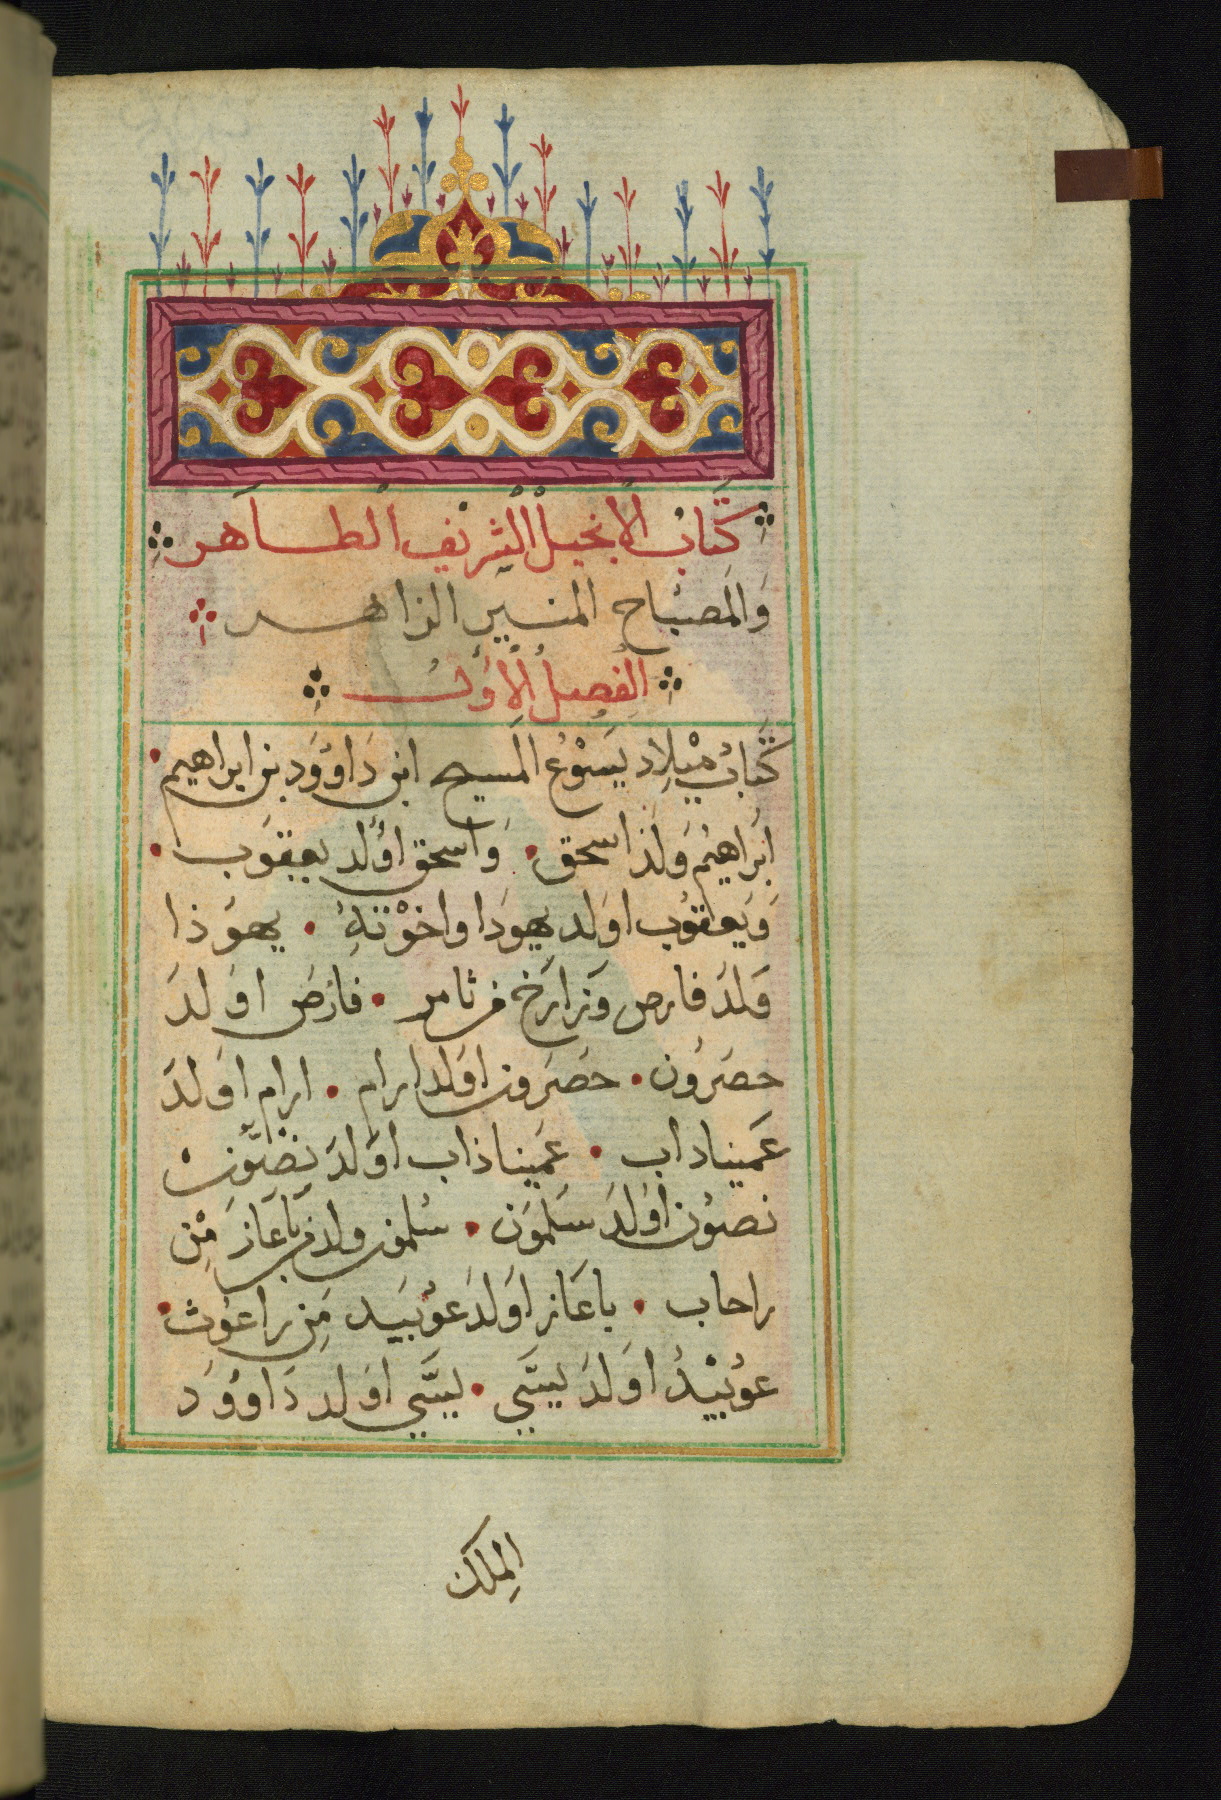 كتاب الانجيل الشريف الطاهر
وَالمَصبَاح المنير الزاهر
الفصل الاَول
كتابُ ميْلاِد يَسْوُع المَسيح ابن دَاوُوَد بن ابراهيم
ابَراهيْمَ وَلَدَ اسحق • وَاسحق اوَلد يعقوَب •
وَيَعقوُب اوَلد يهوَدا واخوْتهِ • يهوَذا
وَلدَ فارص وَزارَخ من ثامر • فارَصَ اوَلدَ
حصَرُون • حصَرَون اوَلد ارام • ارام اوَلدَ
عَميناداب • عَميناذاب اوَلدَ نصَّون
نصوُن اوَلدَ سَلموَن • سُلمون ولد باَعَازَ مْن
راحاب • باعَاز اوَلدَ عوُبيَد مَن راعوُث •
عوُبيْدُ اوَلدَ يسَّي • يسَّي اوَلد دَاووُدَ
المِلَك